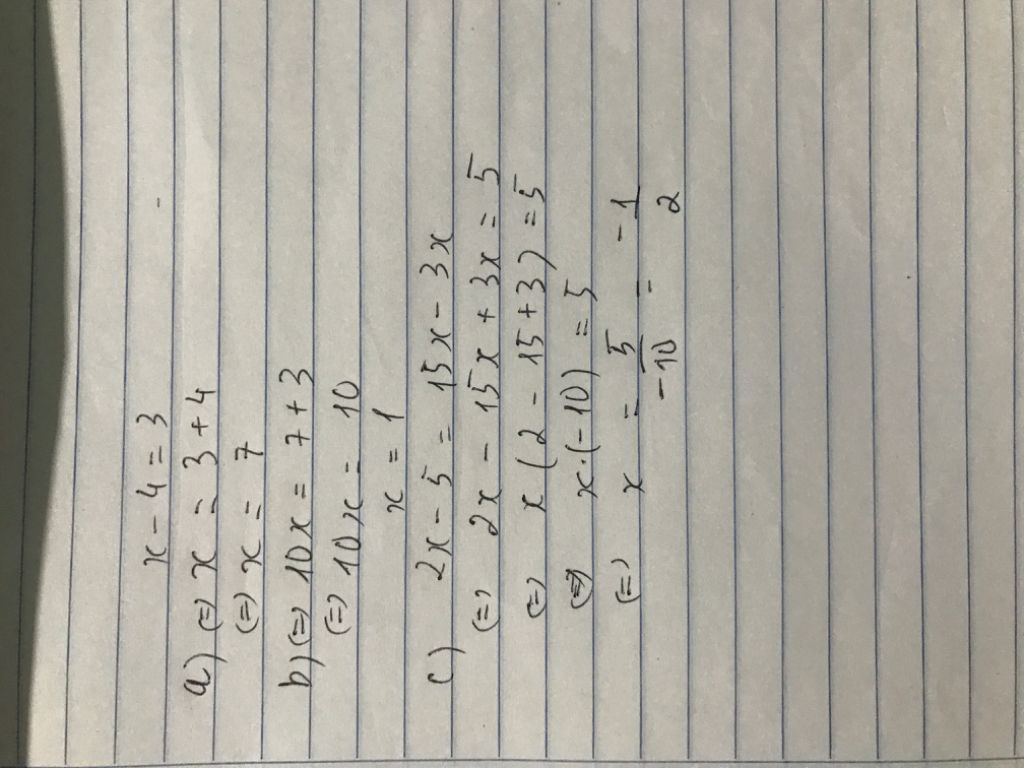 x - 4 = 3
a) (=) x = 3 + 4
(=) x = 7
b) (=) 10x = 7 + 3
(=) 10x = 10
x = 1
c) 2x - 5 = 15x - 3x
(=) 2x - 15x + 3x = 5
(=) x (2 - 15 + 3) = 5
(=) x.(-10) = 5
(=) x = 5/-10 = -1/2